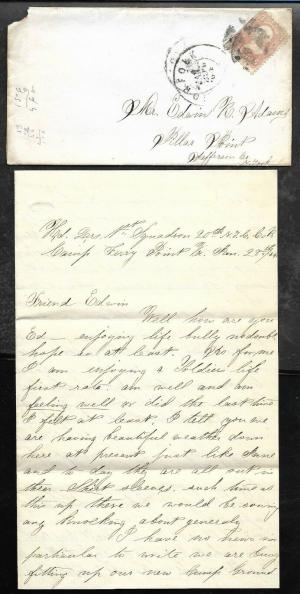 NORFOLK
Mr. Edwin R. Adams
Pillar Point
Jefferson Co
N. York
Hd. Qrs. 1st Squadron 20th N.Y. C.
Camp Ferry Point Va. Jan. 28th/64
Friend Edwin
Well how are you
Ed — enjoying life bully no doubt
hope so at least. As for me
I am enjoying a Soldiers life
first rate. am well and am
feeling well or did the last time
I felt at least. I tell you we
are having beautiful weather down
here at present just like June
and to day they are all out in
their Shirt sleeves. such time as
this up there we would be
any knocking about generaly
I have no news in
particular to write we are busy
fitting up our new Camp Ground